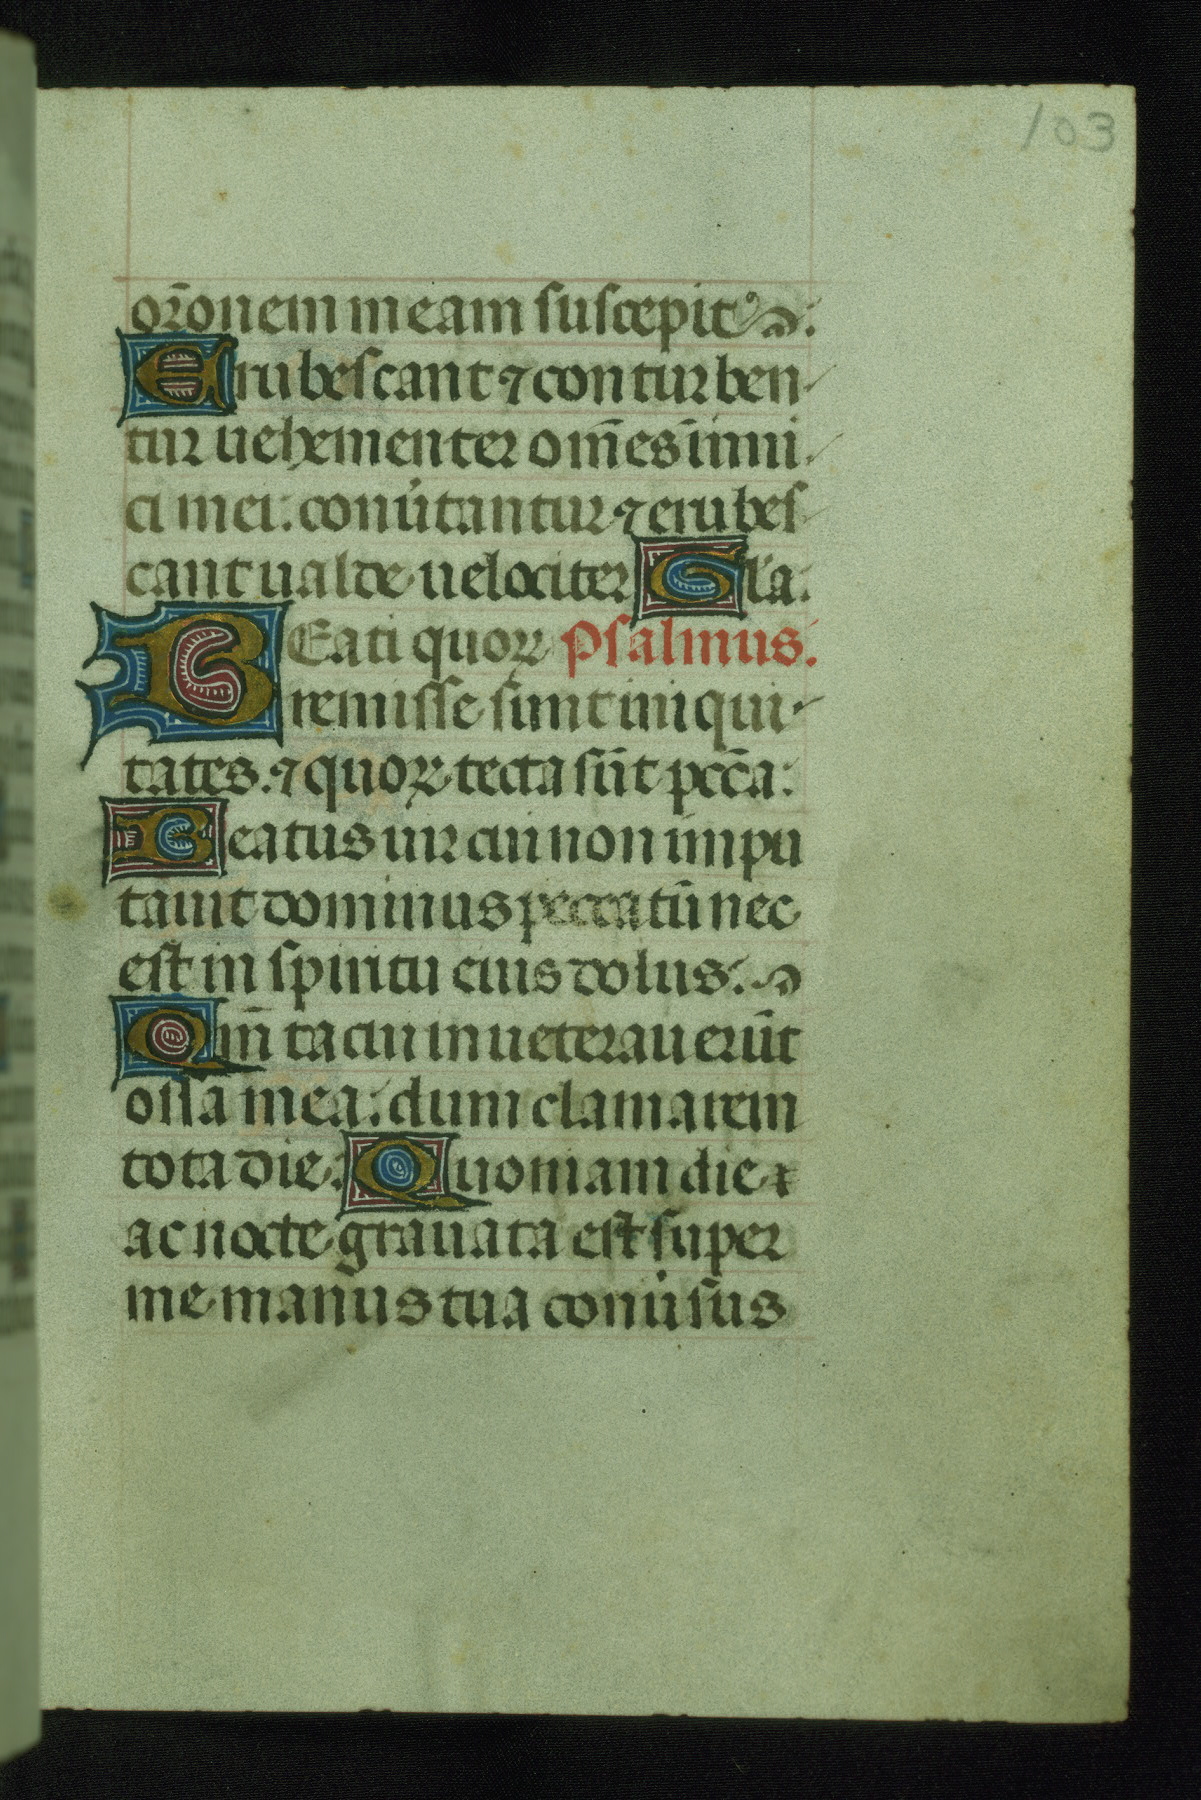 103
or̄onem meam suscepit.
Erubescant ⁊ conturben
tur uehementer om̄es inimi
ci mei: conu̇tantur ⁊ erubes
cant ualde uelociter Gl'a.
BEati quoꝝ Psalmus.
remisse sunt iniqui
tates. ⁊ quoꝝ tecta sūt pcc̄a:
Beatus uir cui non impu
tauit dominus peccatū nec
est in spiritu eius dolus:
Qm̄ tacui inueterauerūt
ossa mea: dum clamarem
tota die: Quoniam die
ac nocte grauata est super
me manus tua conu̇sus